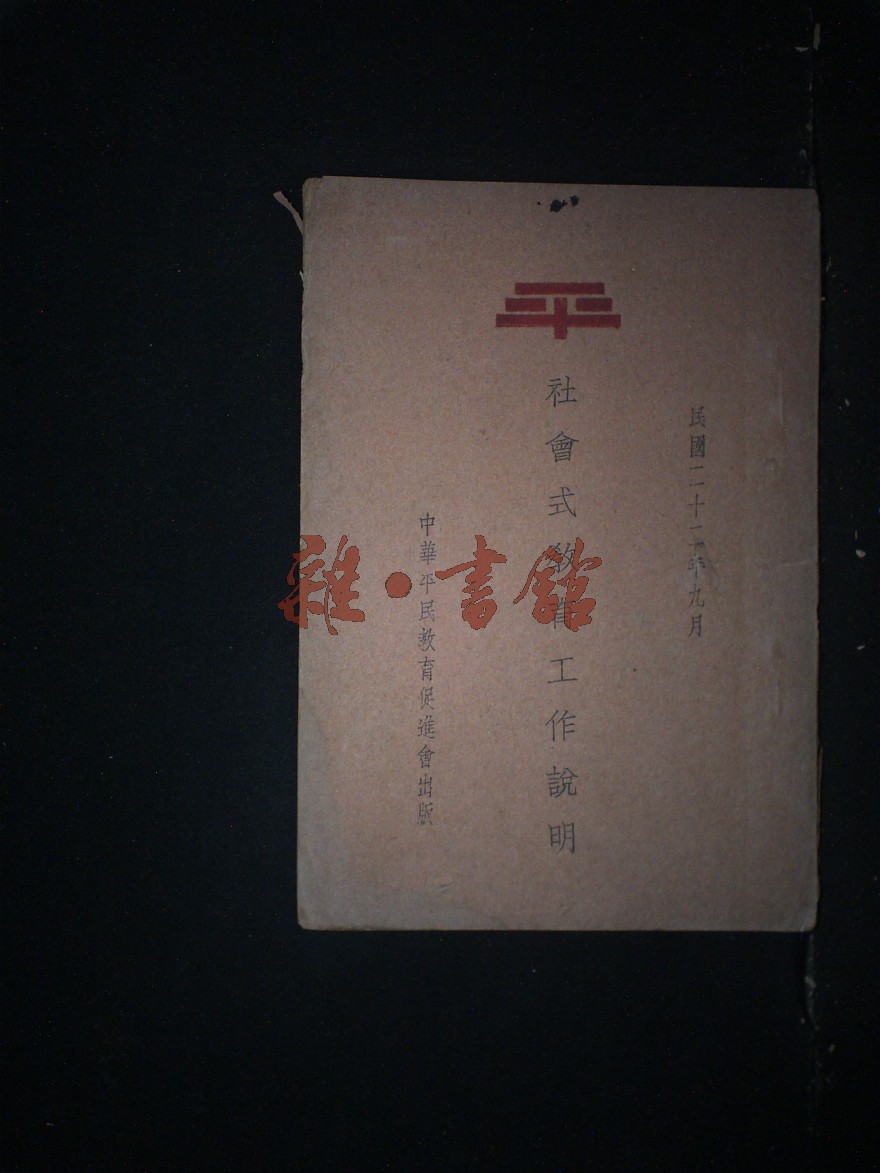 平
民國二十二年九月
社會式教育工作說明
中華平民教育促進會出版
雜·書館